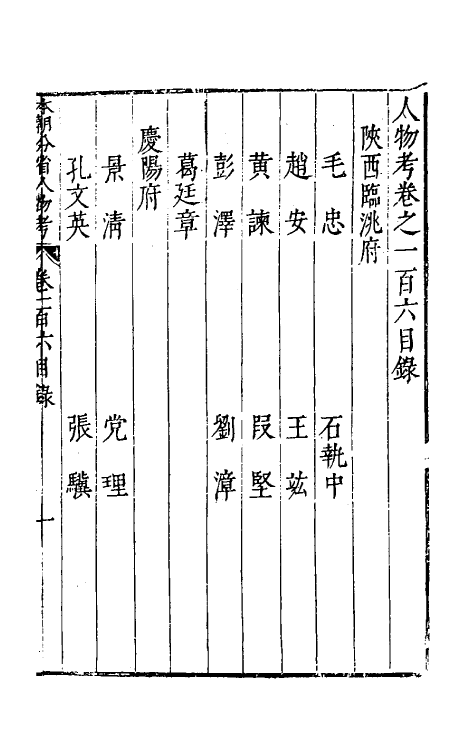 人物考卷之一百六目錄
陝西臨洮府
毛忠 石執中
趙安 王竑
黃諫 段堅
彭澤 劉漳
葛廷章
慶陽府
景清 党理
孔文英 張驥
本朝分省人物考 卷一百六目錄 一